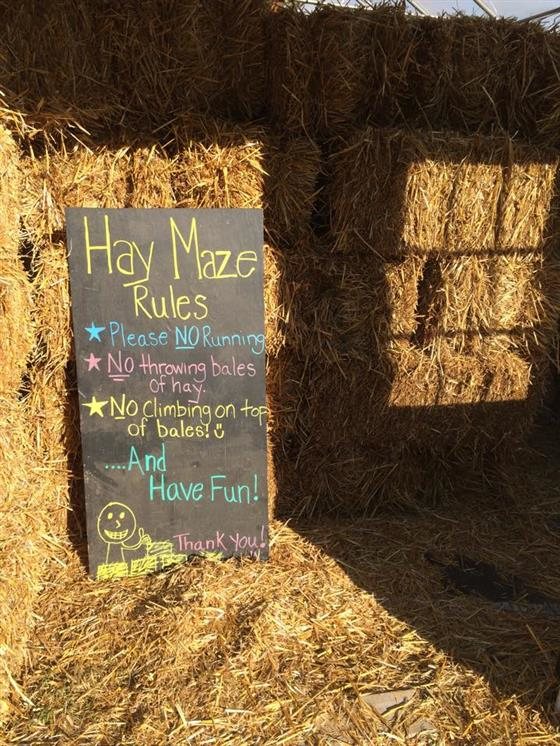 Hay Maze
Rules
Please NO Running
NO throwing bales
of hay.
No Climbing on top
of bales!
....And
Have Fun!
Thank you!